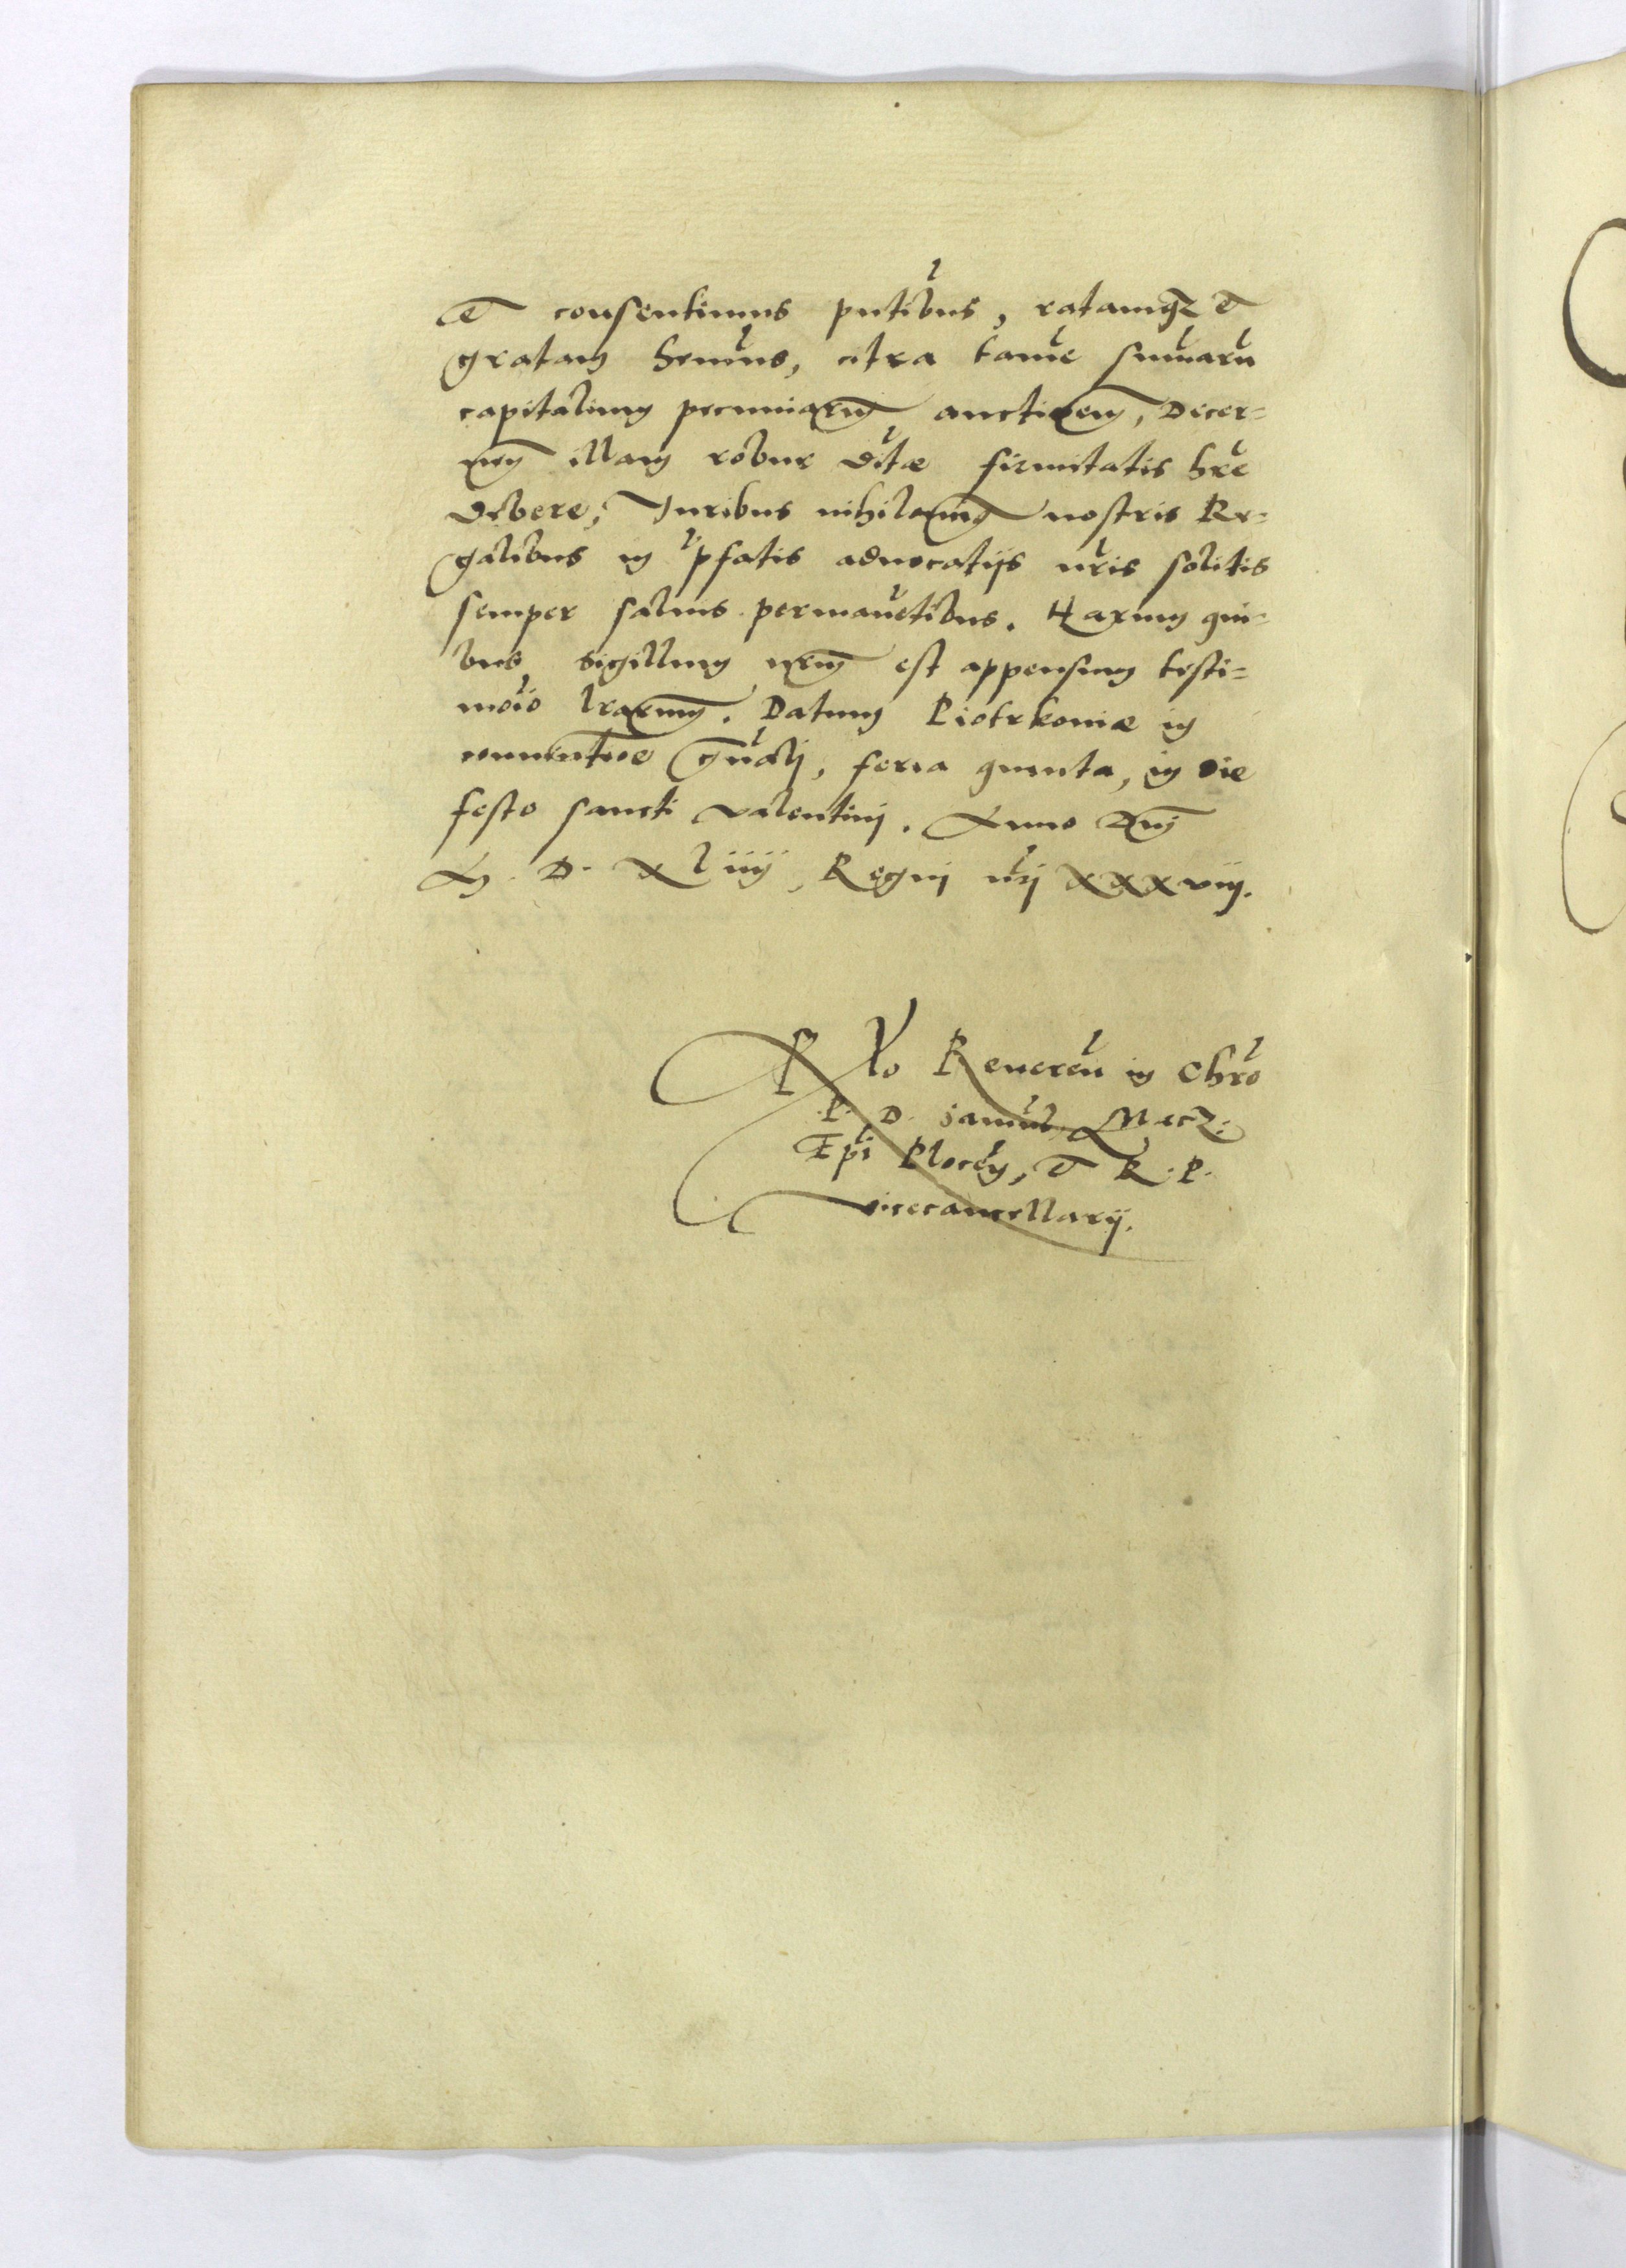 et consentimus pntibus, ratamq3 et
gratam hemus, citra tame sumaru
capitalium pecuniarum auctionem, Decer=
nem illam robur ditæ firmitatis hre
debere, Iuribus nihilominus nostris Re=
galibus in pfatis aduocatijs nris solitis
semper saluis permanetibus. Harum qui=
bus, sigillum nrum est appensum testi=
moio lrarum. Datum Piotrkouiæ in
conuentioe gnali, feria quinta, in die
festo sancti Valentini. Anno Dnj
M. D. Xliiij, Regni nrj XXXviij.
Rlo Reueren in Chro
P. D. Samuel Macz:
Epi Plocen, et R. P.
vicecancellarij.